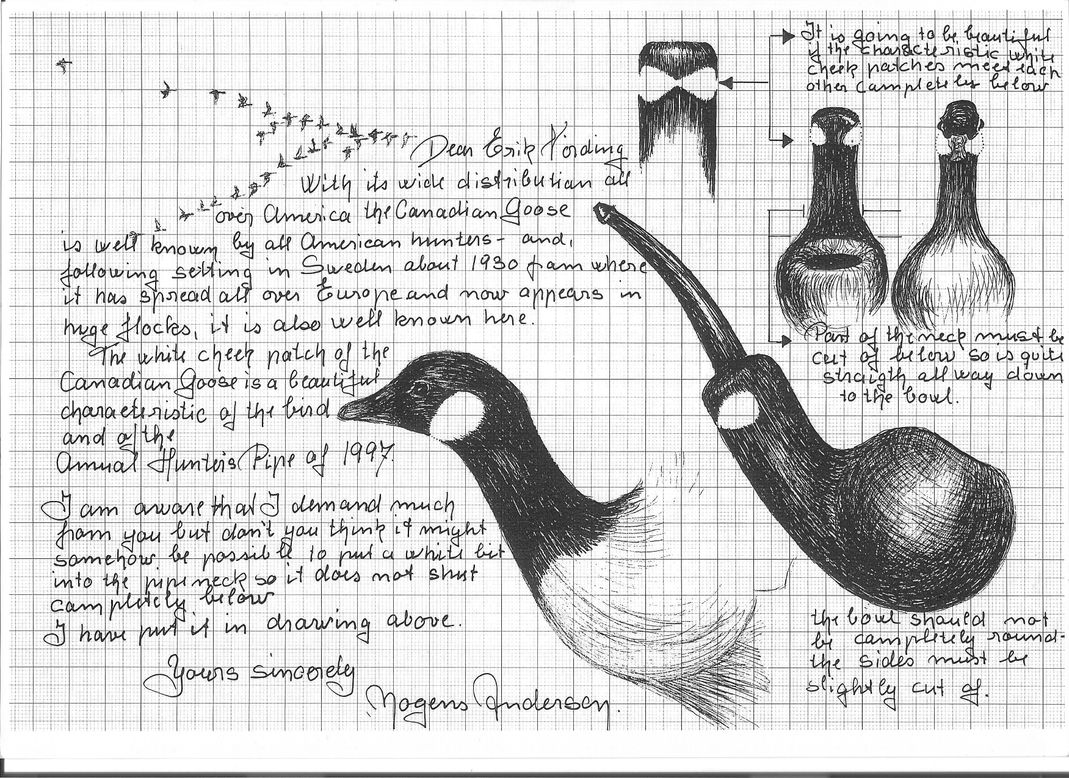 Dear Erik Nørding
With its wide distribution all
over America the Canadian Goose
is well known by all American hunters- and,
following setting in Sweden about 1930 from where
it has spread all over Europe and now appears in
huge flocks, it is also well known here.
The white cheek patch of the
Canadian Goose is a beautiful
characteristic of the bird
and of the
Annual Hunters Pipe of 1997.
I am aware that I demand much
from you but don't you think it might
somehow be possible to put a white bit
into the pipeneck so it does not shut
completely below
I have put it in drawing above.
Yours sincerely
Mogens Andersen.
It is going to be beautiful
if the characteristic white
cheek patches meet each
other completely below
Part of the neck must be
cut of below so is quite
straigth all way down
to the bowl.
the bowl should not
be completely round-
the sides must be
slightly cut of.